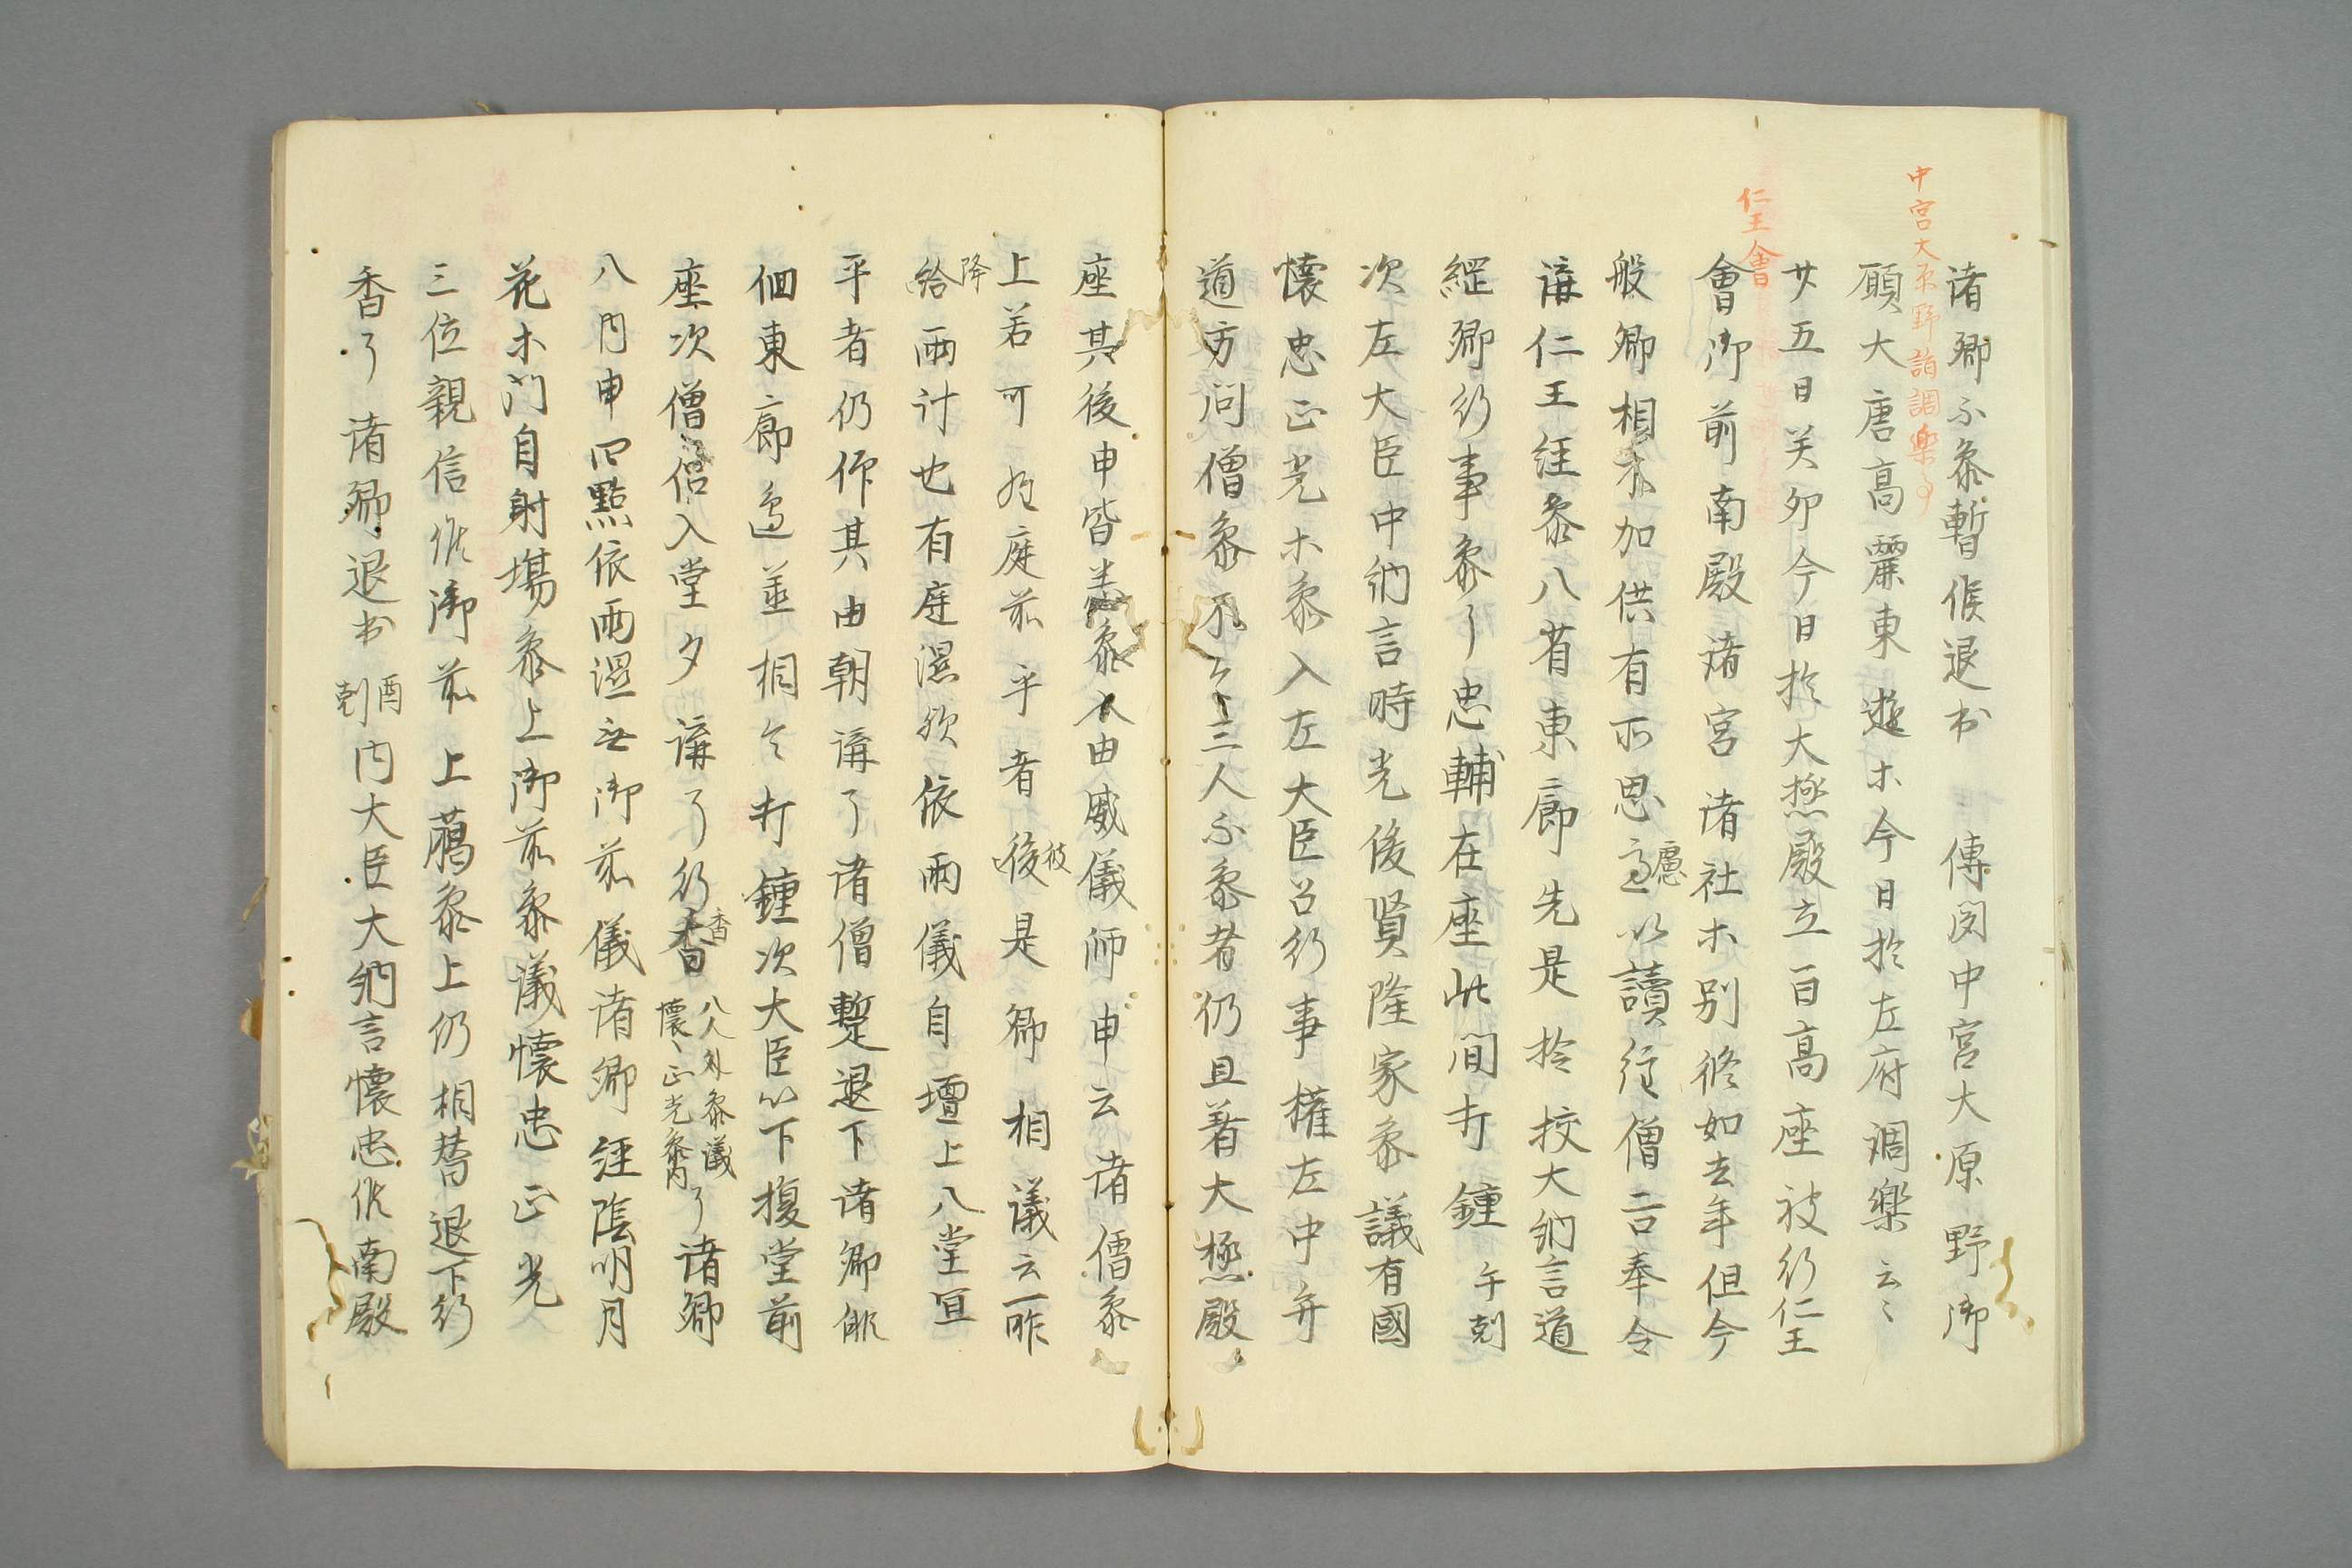 中宮大原野詣調樂事
諸卿不參暫候退出 傳聞中宮大原野御
願大唐高麗東遊木今日於左府調樂云〻
仁王會
廿五日癸卯今日於大極殿立百高座被行仁王
會御前南殿諸宮諸社木別修如去年但今
般卿相木加供有所思慮以讀經僧二口奉令
講仁王經參八省東廊先是於挍大納言道
綱卿行事參了忠輔在座此間打鐘午剋
次左大臣中納言時光俊賢隆家參議有國
懷忠正光木參入左大臣召行事權左中弁
道方問僧參不云二三人不參者仍且著大極殿
座其後申皆悉參入由威儀師申云諸僧參
上若可 庭前乎者彼後是卿相議云昨
降給雨計也有庭濕欤依雨儀自壇上入堂宜
乎者仍仰其由朝講了諸僧暫退下諸卿俳
徊東廊邊並相令打鐘次大臣以下復堂前
座次僧侶入堂夕講了行香香八人外參議懷〻正光參內了諸卿
入內申四點依雨濕無御前儀諸卿經陰明月
花木門自射場參上御前參議懷忠正光
三位親信候御前上﨟參上仍相替退下行
香了諸卿退出酉剋內大臣大納言懷忠候南殿